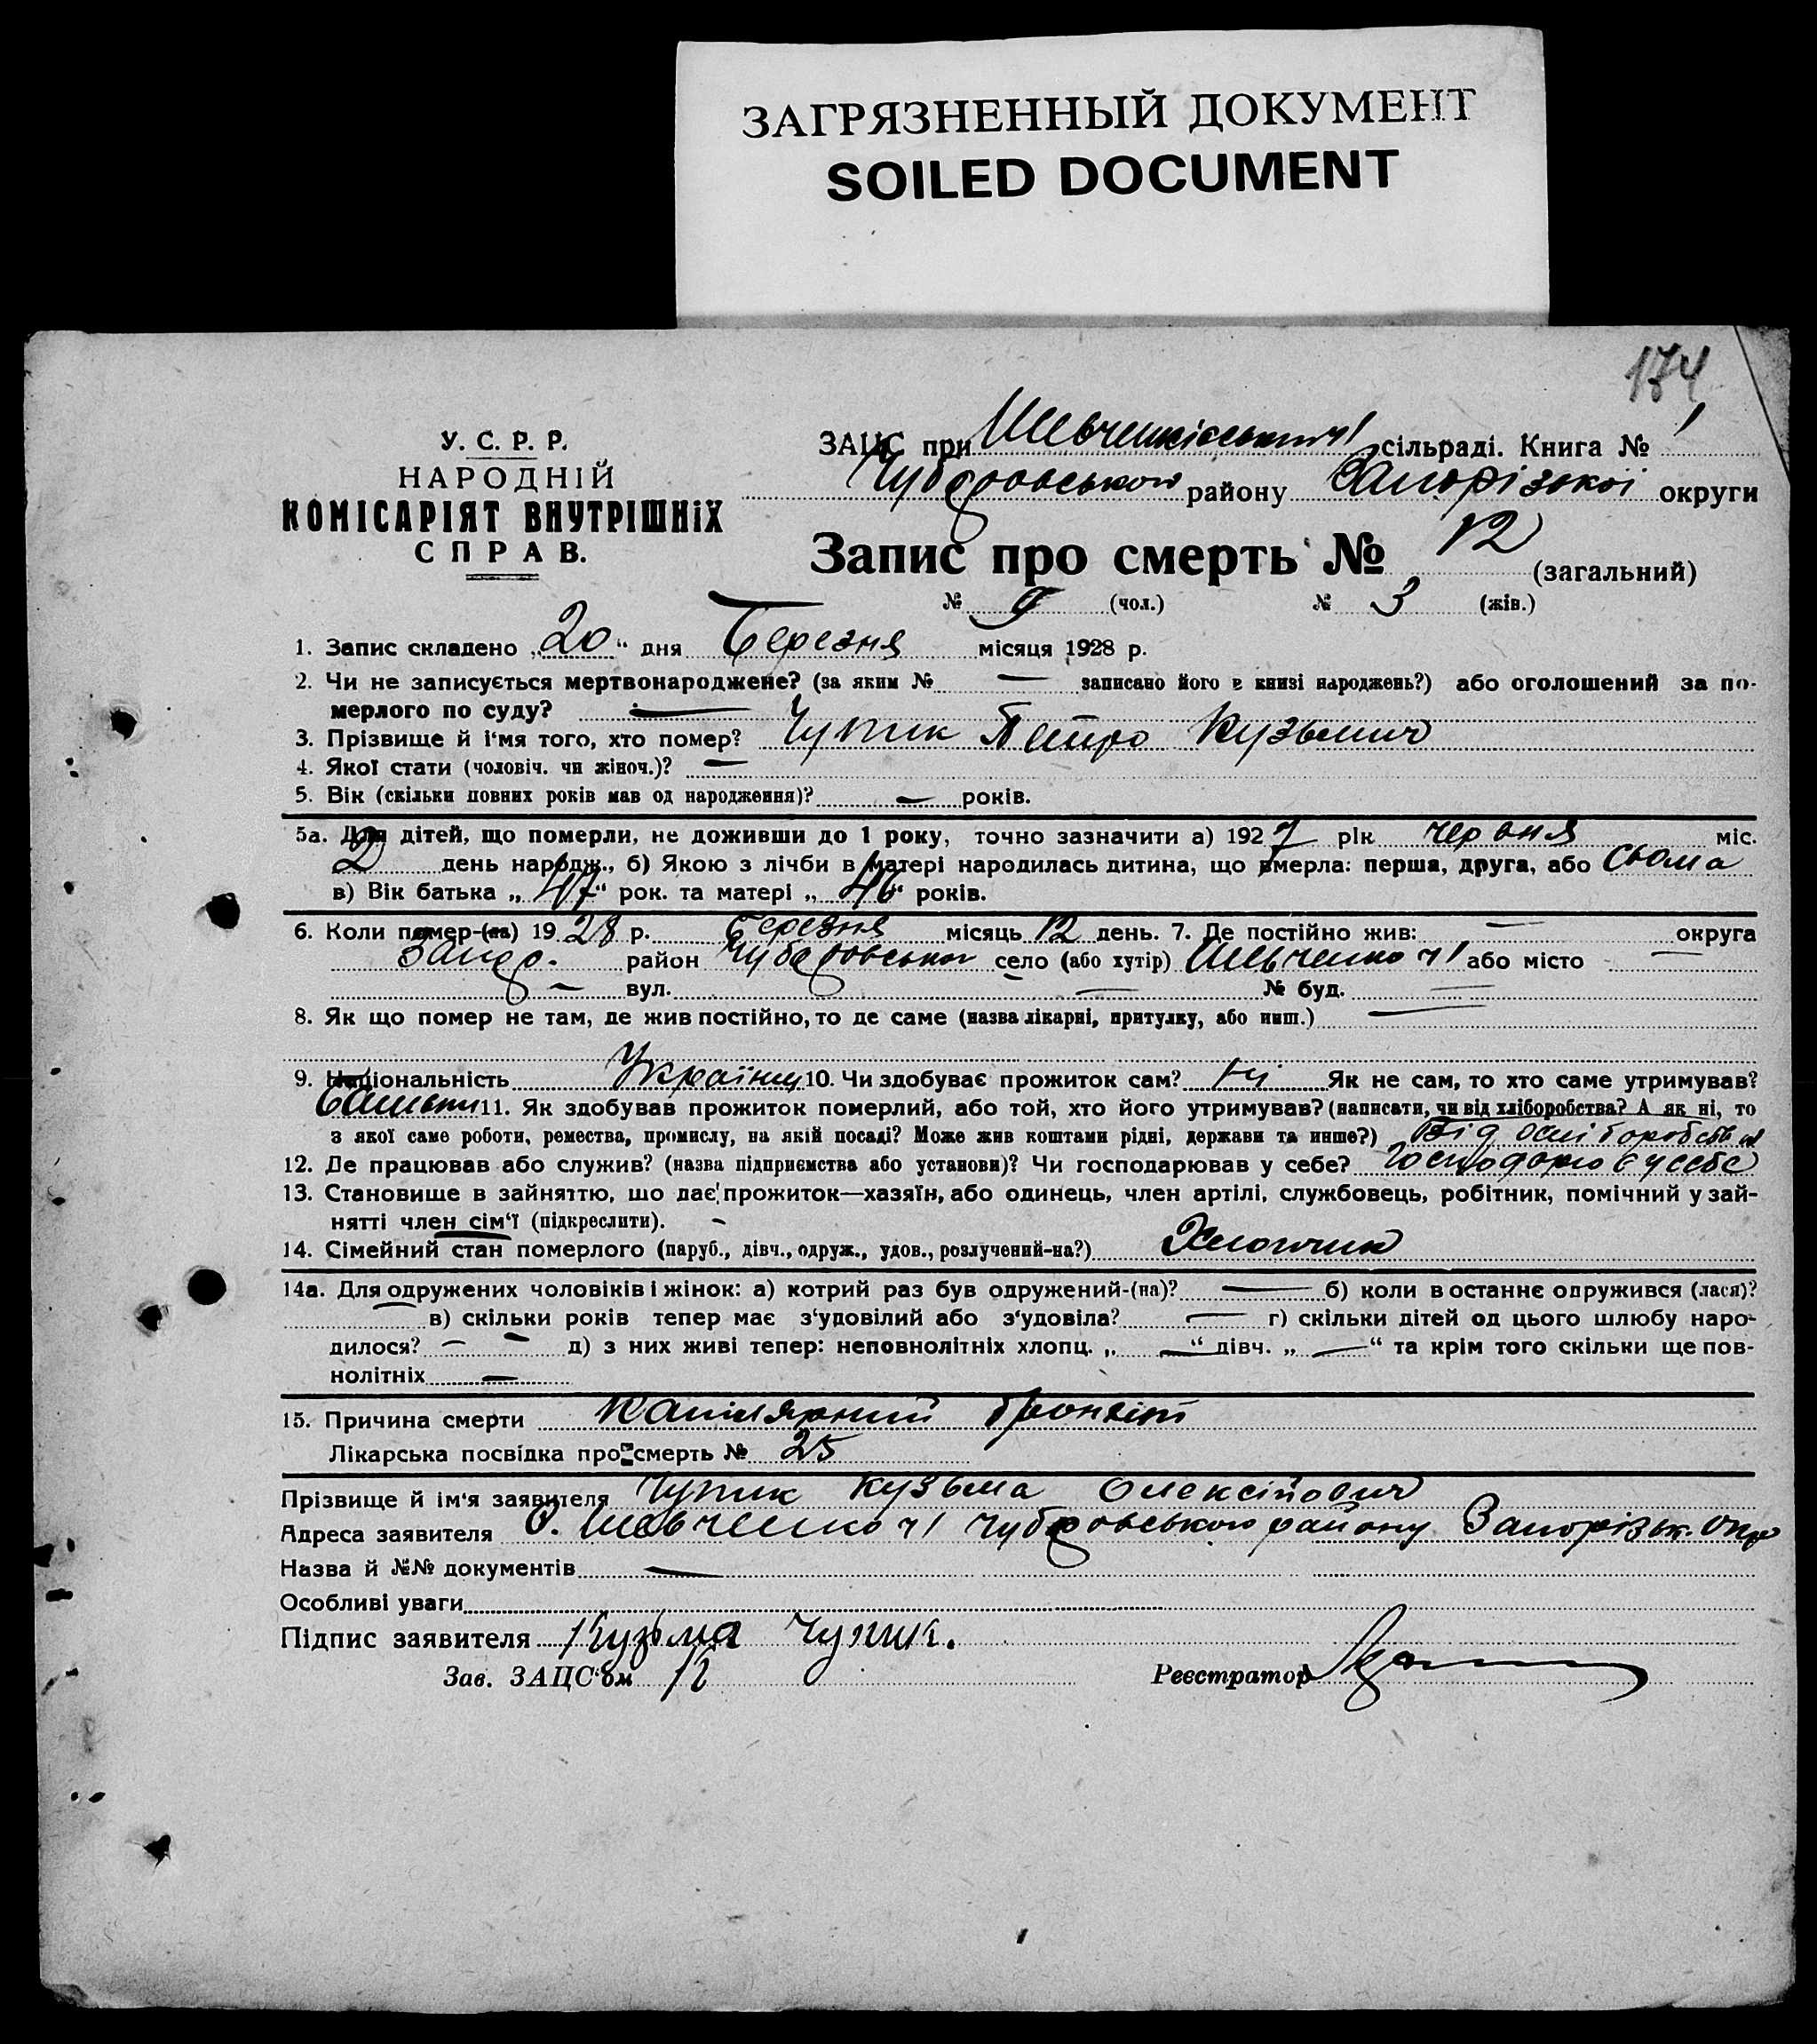 ЗАГРЯЗНЕННЫЙ ДОКУМЕНТ
SOILED DOCUMENT
174
У. С. Р. Р.
НАРОДНІЙ
КОМІСАРІЯТ ВНУТРІШНІХ
СПРАВ.
ЗАЦС при сільраді. Книга № 1
Чубаровського району Запорізької округи
Запис про смерть № 12 (загальний)
№ 9 (чол.) № 3 (жів.)
1. Запис складено „20“ дня Березня місяця 1928 р.
2. Чи не записується мертвонароджене? (за яким № — записано його в книзі народжень?) або оголошений за по-
мерлого по суду? —
3. Прізвище й і'мя того, хто помер? Чупик Петро Кузьмич
4. Якої стати (чоловіч. чи жіноч.)? —
5. Вік (скільки повних років мав од народження)? — років.
5а. Для дітей, що померли, не доживши до 1 року, точно зазначити а) 1927 рік червня міс.
2 день народж., б) Якою з лічби в матері народилась дитина, що вмерла: перша, друга, або сьома
в) Вік батька „47“ рок. та матері „46“ років.
6. Коли помер-(ла) 1928 р. Березня місяць 12 день. 7. Де постійно жив: — округа
Запор. район Чубаровської село (або хутір) Шевченко ч1 або місто —
— вул. — № буд. —
8. Як що помер не там, де жив постійно, то де саме (назва лікарні, притулку, або инш.) —
9. Національність Українц 10. Чи здобуває прожиток сам? Ні Як не сам, то хто саме утримував?
Батьки 11. Як здобував прожиток померлий, або той, хто його утримував? (написати, чи від хліборобства? А як ні, то
з якої саме роботи, ремества, промислу, на якій посаді? Може жив коштами рідні, держави та инше?) Від
12. Де працював або служив? (назва підприємства або установи)? Чи господарював у себе? Господарював у себе
13. Становище в зайняттю, що дає прожиток—хазяїн, або одинець, член артілі, службовець, робітник, помічний у зай-
нятті член сім'ї (підкреслити). -
14. Сімейний стан померлого (паруб., дівч., одруж., удов., розлучений-на?) Хлопчик
14а. Для одружених чоловіків і жінок: а) котрий раз був одружений-(на)? — б) коли в останнє одружився (лася)?
— в) скільки років тепер має з'удовілий або з'удовіла? — г) скільки дітей од цього шлюбу наро-
дилося? — — д) з них живі тепер: неповнолітніх хлопц. „—“ дівч. „—“ та крім того скільки ще пов-
нолітніх —
15. Причина смерти Капілярний бронхіт
Лікарська посвідка про смерть № 25
Прізвище й ім'я заявителя Чупик Кузьма Олексійович
Адреса заявителя С. Шевченко ч1 Чубаровського району Запорізьк. Окр
Назва й №№ документів —
Особливі уваги
Підпис заявителя Кузьма Чупик.
Зав. ЗАЦС'ом
Реєстратор